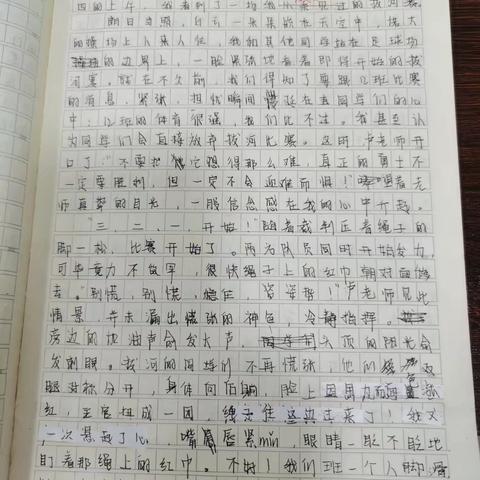 四的上午，我看到了一场我从未见过的拔河赛。
明日当照，白云一朵朵飘在天空中，偌大
的操场上人来人往，我和其他同学站在足球场
的边界上，一脸紧张地看着即将开始的拔
河赛。就在不久前，我们得知了要跟12班比赛
的消息，紧张、担忧瞬间蔓延在同学们的心
中：12班的体育很强，我们比不过。我甚至认
为同学们会直接放弃拔河比赛。这时，卢老师开
口了：“不要把它想得那么难，真正的勇士不
一定要胜利，但一定不会畏难而惧！”看着老
师真挚的目光，一股信念感在我的心中升起。
“三、二、一，开始！”随着裁判压着绳子的
脚一松，比赛开始了。两方队员同时开始发力，
可毕竟力不如写，很快绳子上的红巾朝对面偏
去。“别慌，别慌，稳住，姿势！”卢老师见此
情景，并未漏出慌张的神色，冷静指挥。
旁边的加油声愈发大声，头顶的阳光愈
发刺眼。拔河的同学们不再慌张，他们
腿对称分开，身体向后躺，脸上因用力而
红，五官扭成一团，绳子往这边过来了！我又
一次悬到了心，嘴唇紧min，眼睛一眨不眨地
盯着那绳上的红巾。不好！我们班一个人脚滑